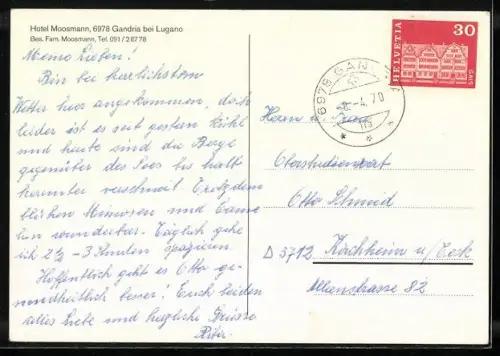 Hotel Moosmann, 6978 Gandria bei Lugano
Bes. Fam. Moosmann, Tel. 091/2 87 78
HELVETIA
30
GAIS
6978 GAN
-4.70
Meine Lieben!
Bin bei herrlichstem
Wetter hier angekommen, doch
leider ist es seit gestern kühl
und heute sind die Berge
gegenüber des Sees bis halb
herunter verschneit. Trotzdem
blühen Mimosen und Came-
lien wunderbar. Täglich gehe
ich 2½ - 3 Stunden spazieren.
Hoffentlich geht es Otto ge-
sundheitlich besser! Euch beiden
alles Liebe und herzliche Grüsse
Herrn u. Frau
Oberstudienrat
Otto Schmid
D 7312 Kirchheim u/Teck
Alleenstrasse 82